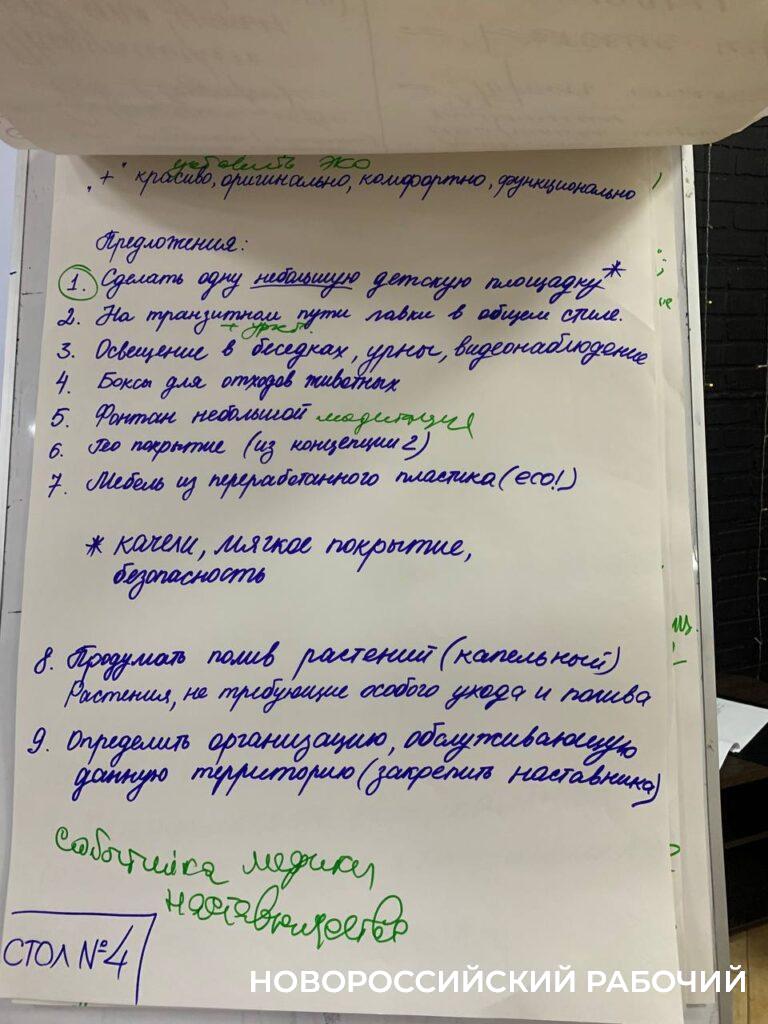 добавить эко
"+" красиво, оригинально, комфортно, функционально
Предложения:
1. Сделать одну небольшую детскую площадку*
2. На транзитном пути лавки в общем стиле.
3. Освещение в беседках, урны, видеонаблюдение
4. Боксы для отходов животных
5. Фонтан небольшой
6. Гео покрытие (из концепции 2)
7. Мебель из переработанного пластика (eco!)
* качели, мягкое покрытие,
безопасность
8. Продумать полив растений (капельный)
Растения, не требующие особого ухода и полива
9. Определить организацию, обслуживающую
данную территорию (закрепить наставника)
событийка медики
наставничество
СТОЛ №4
НОВОРОССИЙСКИЙ РАБОЧИЙ